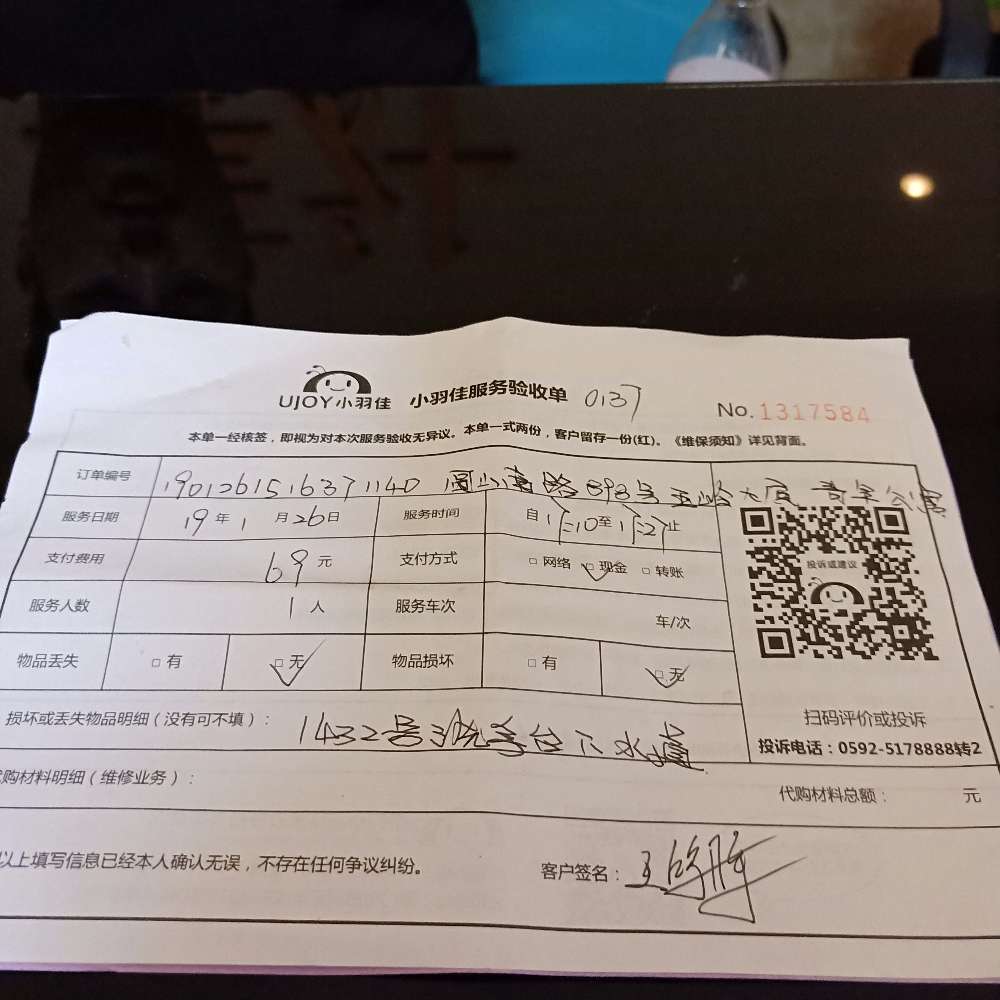 UJOY小羽佳 小羽佳服务验收单 0137
No.1317584
本单一经核签，即视为对本次服务验收无异议。本单一式两份，客户留存一份(红)。《维保须知》详见背面。
订单编号 190126151637 1140 路893号 大厦 公寓
服务日期 19年1月26日 服务时间 自17:10至17:27止
支付费用 69元 支付方式 □网络 □现金 □转账
投诉或建议
服务人数 1人 服务车次 车/次
物品丢失 □有 □无 物品损坏 □有 □无
扫码评价或投诉
损坏或丢失物品明细（没有可不填）： 1432号洗手台下水道
投诉电话：0592-5178888转2
购材料明细（维修业务）：
代购材料总额： 元
以上填写信息已经本人确认无误，不存在任何争议纠纷。 客户签名：王